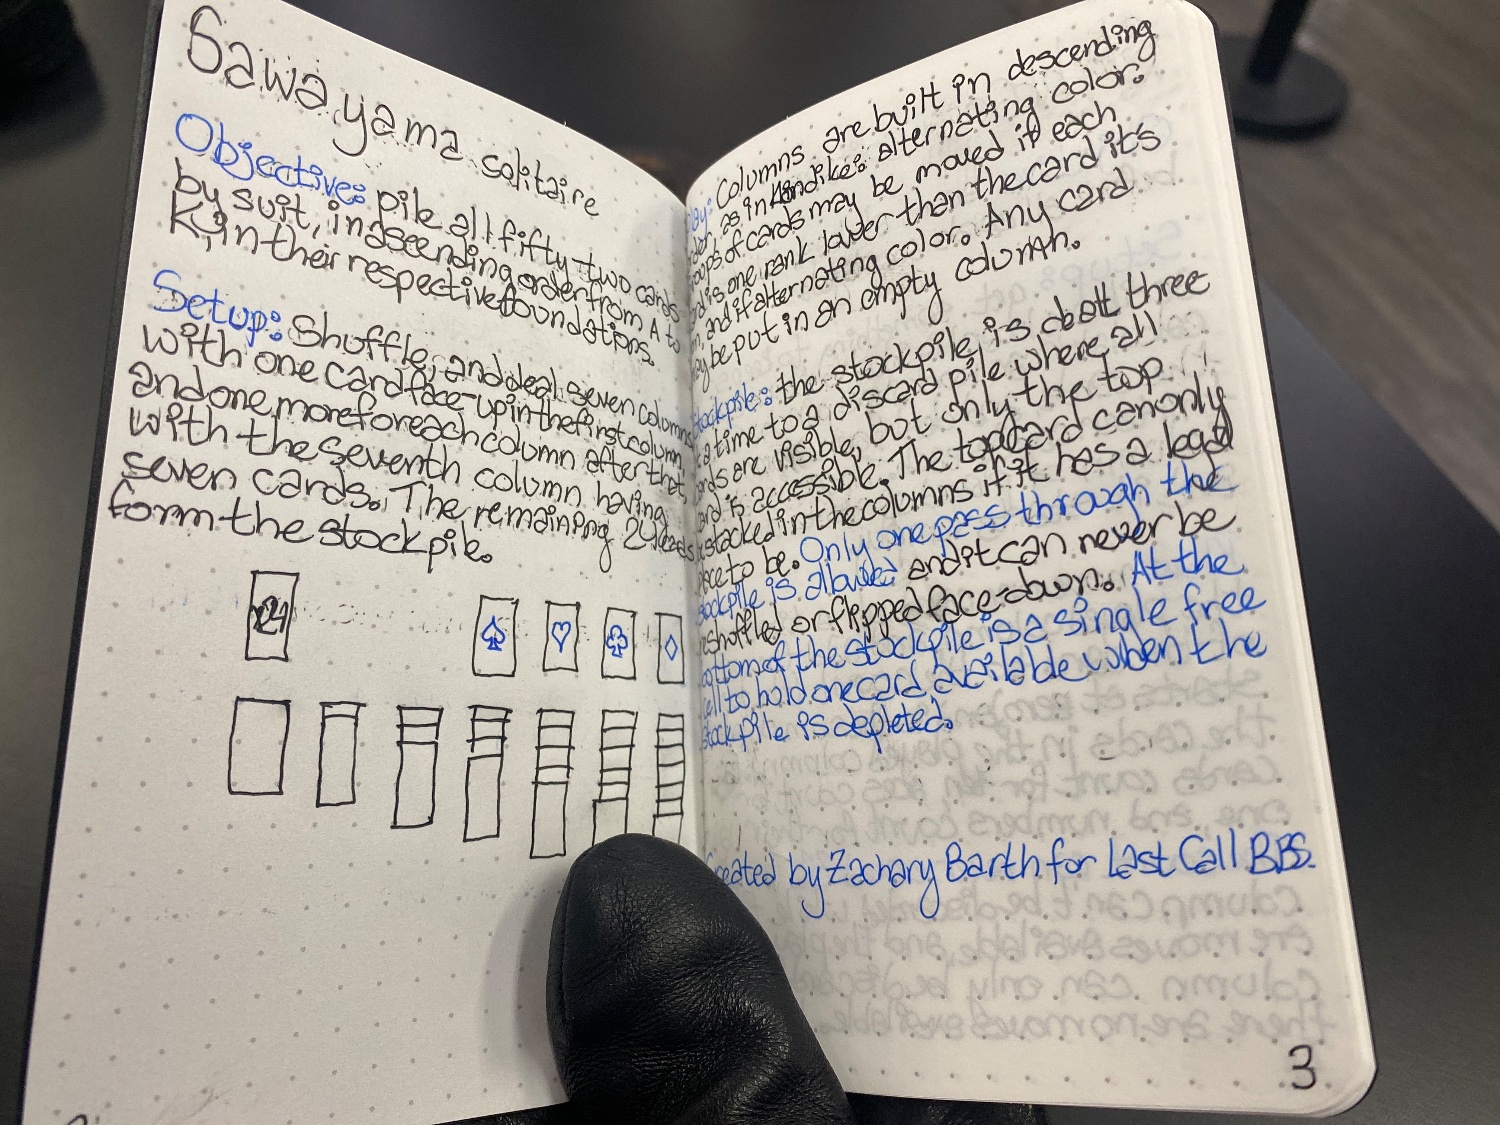 Sawayama solitaire
Objective: pile all fifty-two cards
by suit, in ascending order from A to
K, in their respective foundations.
Setup: Shuffle, and deal seven columns
with one card face-up in the first column,
and one more for each column after that,
with the seventh column having
seven cards. The remaining 24 cards
form the stockpile.
x24
♠ ♡ ♣ ♢
lay: Columns are built in descending
rder, as in Klondike: alternating color.
oups of cards may be moved if each
rd is one rank lower than the card it's
n, and if alternating color. Any card
ay be put in an empty column.
tockpile: the stockpile is dealt three
t a time to a discard pile where all
ards are visible, but only the top
ard is accessible. The top card can only
e stacked in the columns if it has a legal
lace to be. Only one pass through the
tockpile is allowed and it can never be
eshuffled or flipped face-down. At the
ottom of the stockpile is a single free
ell to hold one card, available when the
tockpile is depleted.
reated by Zachary Barth for Last Call BBS.
3